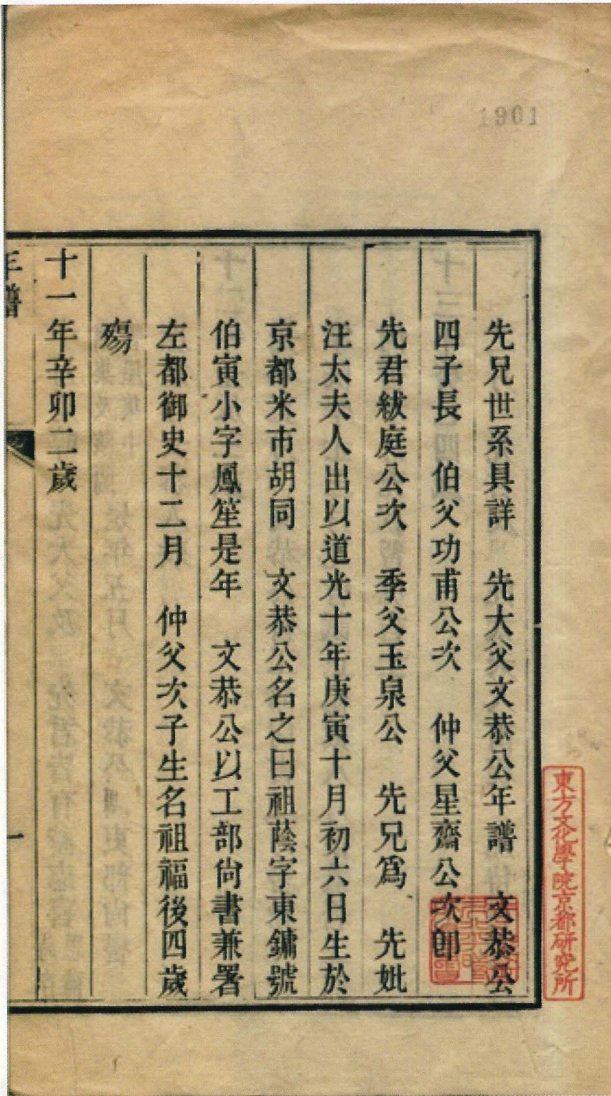 1901
先兄世系具詳　先大父文恭公年譜　文恭公
四子長　伯父功甫公次　仲父星齋公次卽
先君紱庭公次　季父玉泉公　先兄爲　先妣
汪太夫人出以道光十年庚寅十月初六日生於
京都米市胡同　文恭公名之曰祖蔭字東鏞號
伯寅小字鳳笙是年　文恭公以工部尙書兼署
左都御史十二月　仲父次子生名祖福後四歲
殤
十一年辛卯二歲
年譜
一
東方文化學院京都研究所